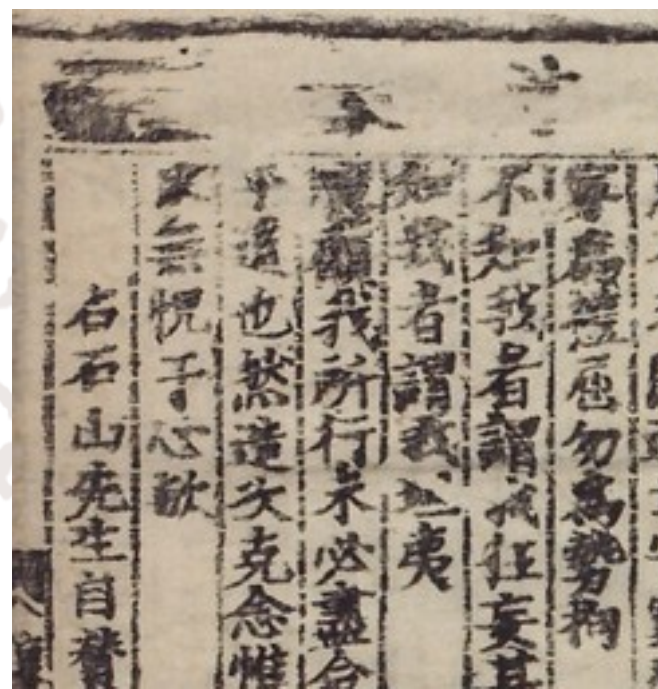 寧爲禮屈勿爲勢拘
不知我者謂我狂妄其
知我者謂我坦夷
噫顧我所行未必盡合
乎道也然造次克念惟
求無愧于心歟
右石山先生自贊